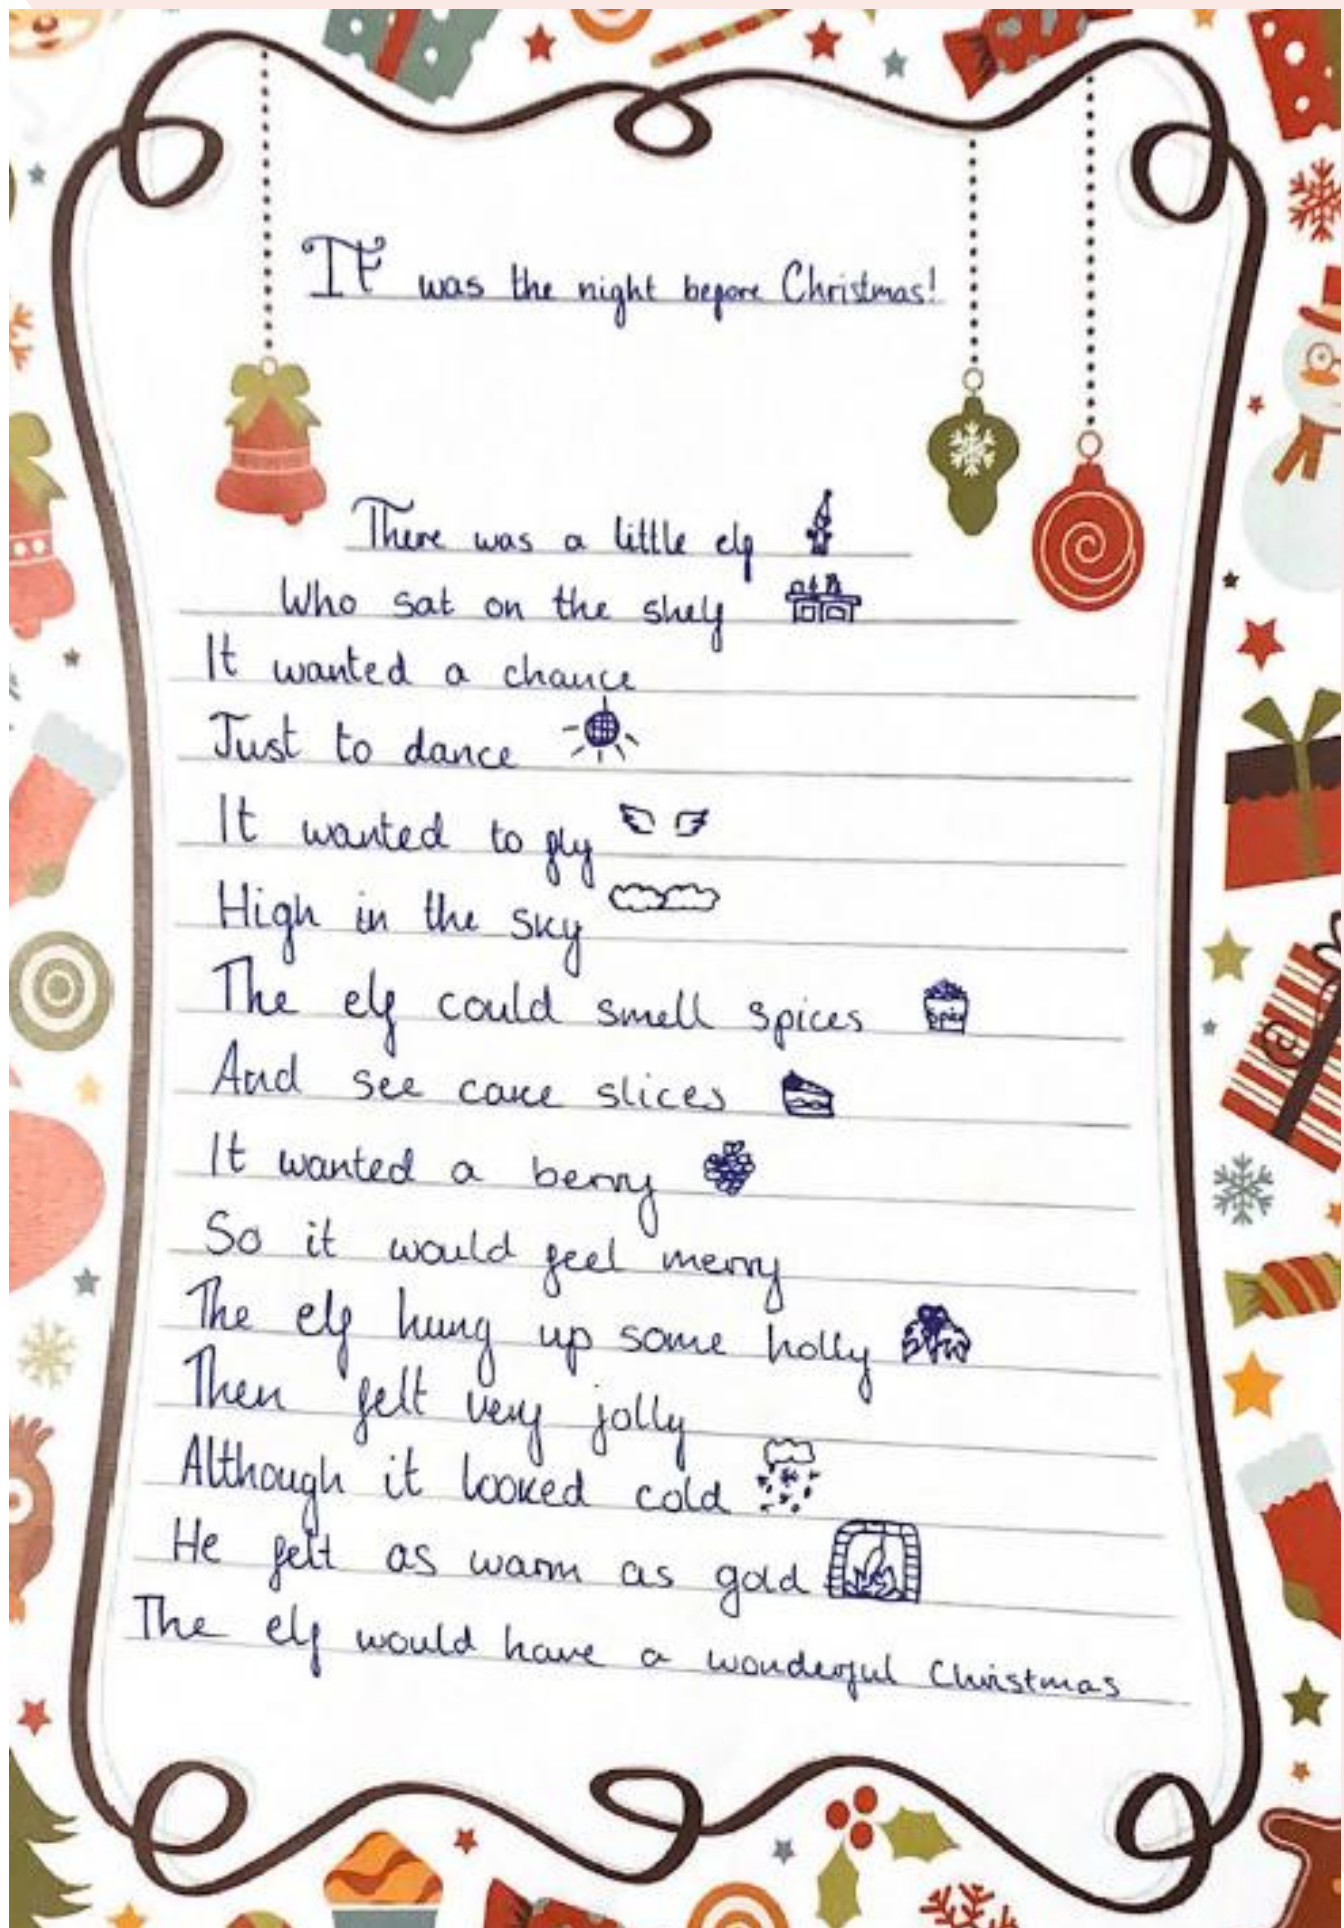 It was the night before Christmas!
There was a little elf
Who sat on the shelf
It wanted a chance
Just to dance
It wanted to fly
High in the sky
The elf could smell spices
And see cake slices
It wanted a berry
So it would feel merry
The elf hung up some holly
Then felt very jolly
Although it looked cold
He felt as warm as gold
The elf would have a wonderful Christmas